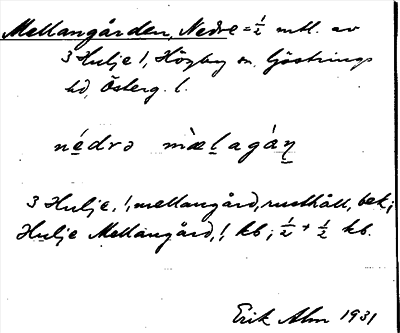 Mellangården, Nedre = ½ mtl. av
3 Hulje !, Högby sn, Göstrings
hd, Österg. l.
nédrə mæ̀l̥agáṇ
3 Hulje, !, mellangård, rusthåll, bek;
Hulje Mellangård, !, kb; ½ + ½ kb.
Erik Alm 1931